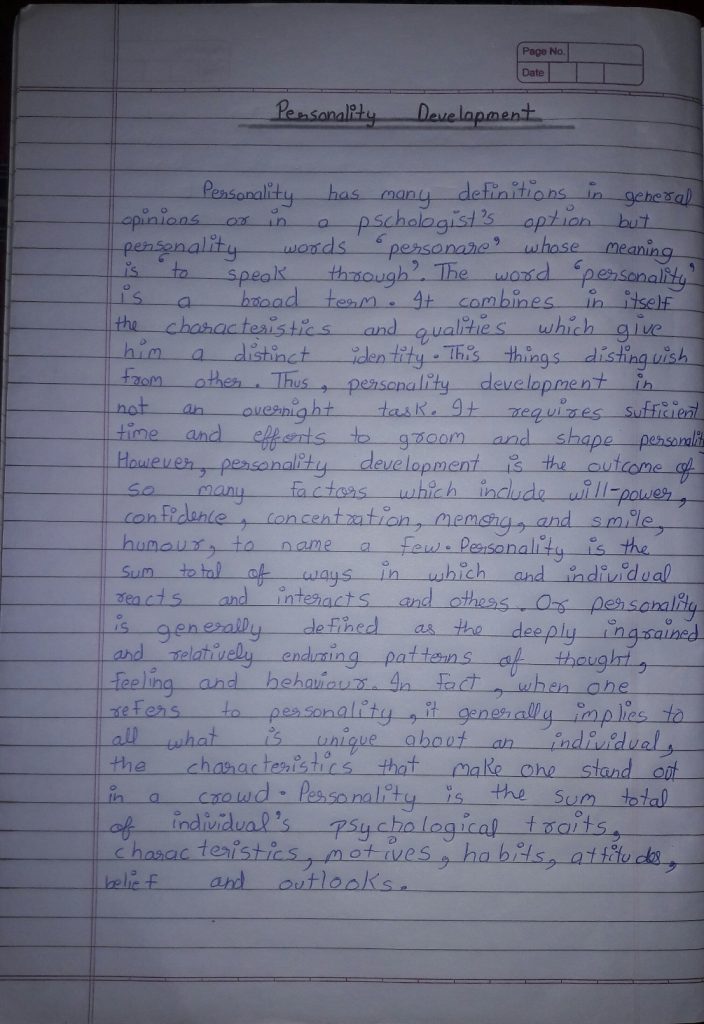 Page No.
Date
Personality Development
Personality has many definitions in general
opinions or in a pschologist's option but
personality words 'personare' whose meaning
is 'to speak through'. The word 'personality'
is a broad term. It combines in itself
the characteristics and qualities which give
him a distinct identity. This things distinguish
from other. Thus, personality development in
not an overnight task. It requires sufficient
time and efforts to groom and shape personality
However, personality development is the outcome of
so many factors which include will-power,
confidence, concentration, memory, and smile,
humour, to name a few. Personality is the
sum total of ways in which and individual
reacts and interacts and others. Or personality
is generally defined as the deeply ingrained
and relatively enduring patterns of thought,
feeling and behaviour. In fact, when one
refers to personality, it generally implies to
all what is unique about an individual,
the characteristics that make one stand out
in a crowd. Personality is the sum total
of individual's psychological traits,
characteristics, motives, habits, attitudes,
belief and outlooks.